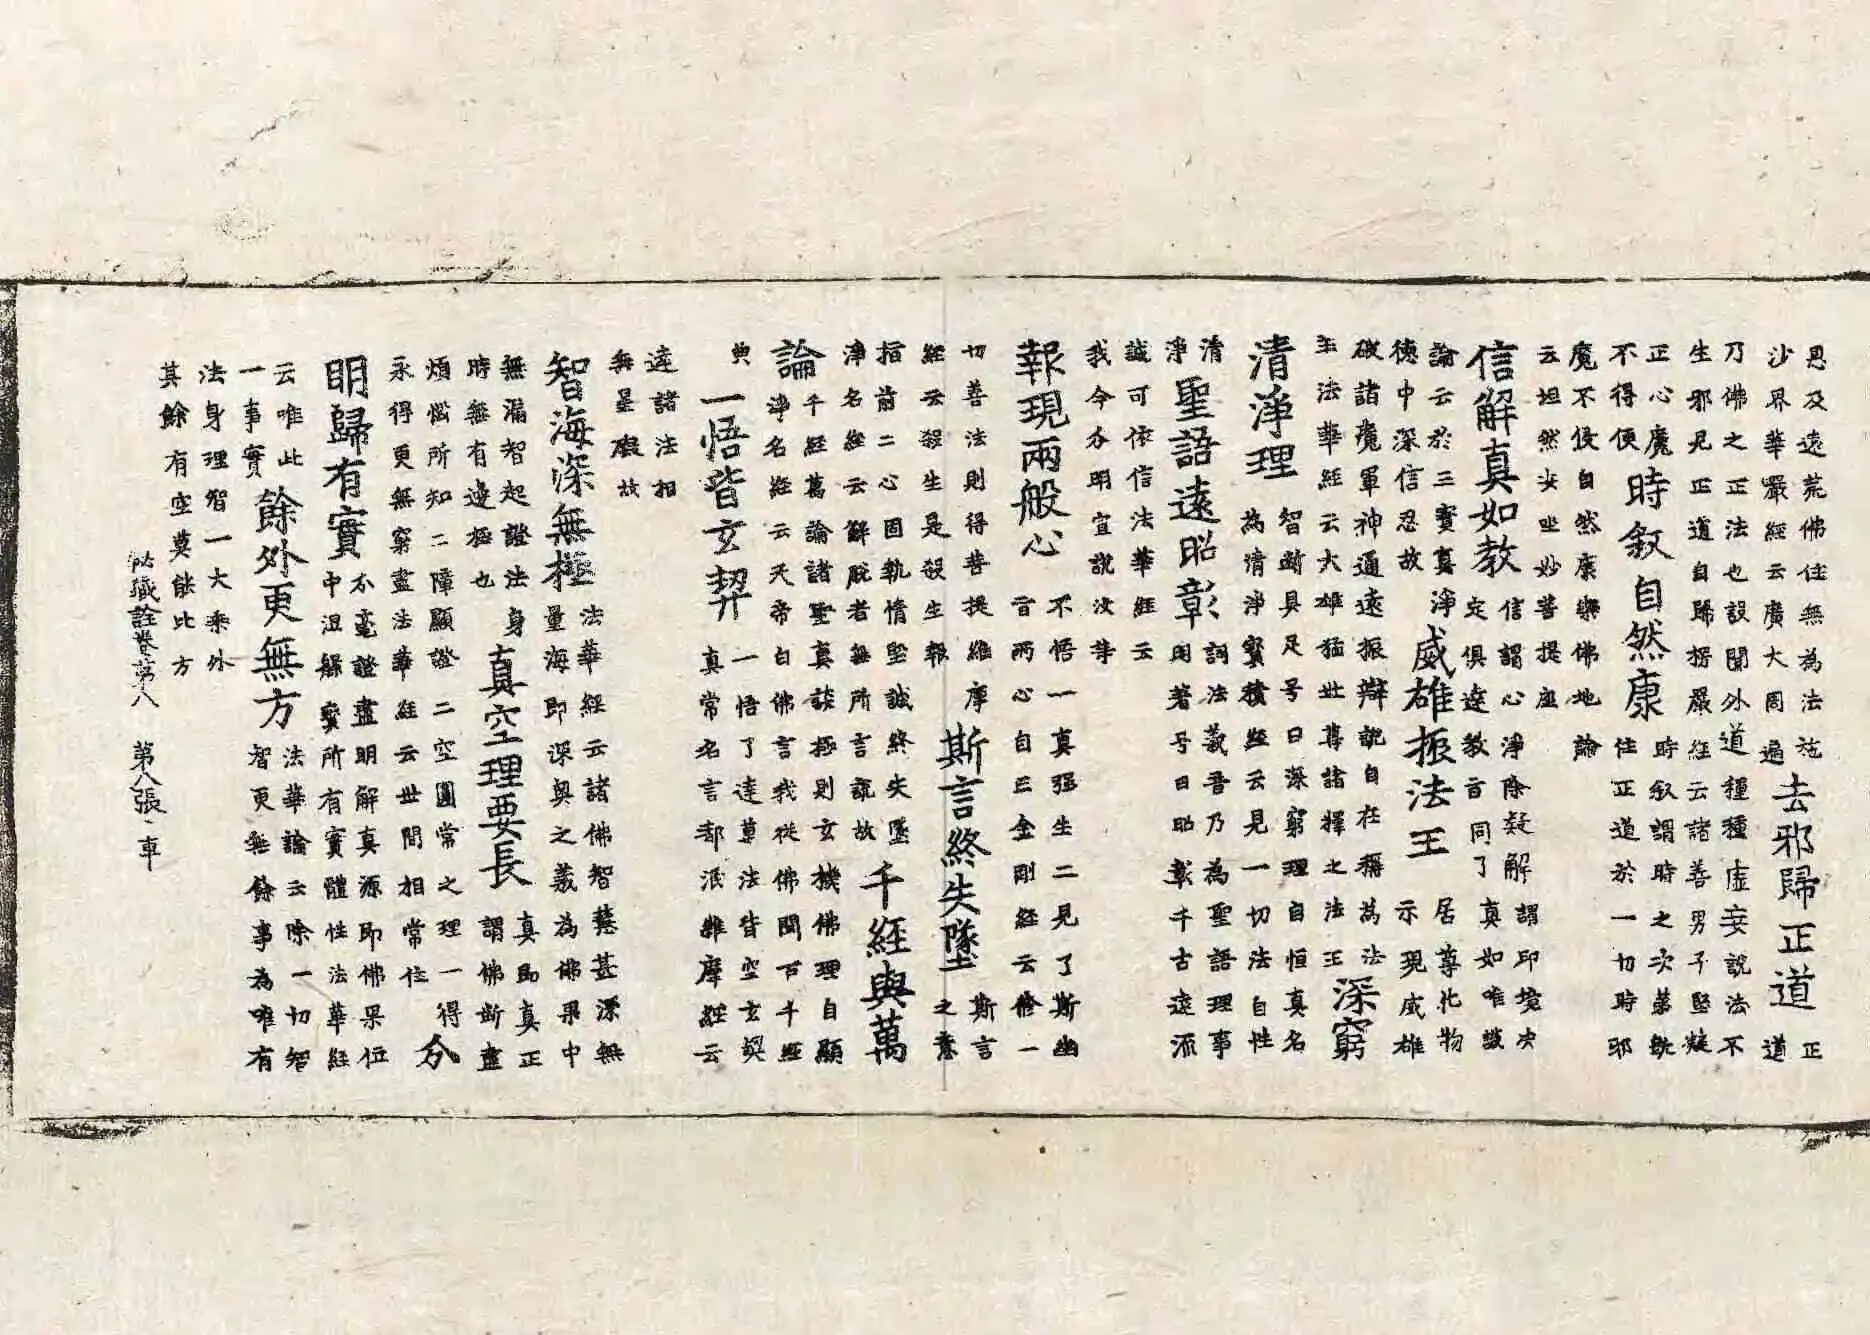 恩及遠荒佛住無為法施
沙界華嚴經云廣大周遍
去邪歸正道
正
道
乃佛之正法也設聞外道種種虛妄說法不
生邪見正道自歸楞嚴經云諸善男子堅凝
正心魔
不得便
時叙自然康
時叙謂時之次第既
住正道於一切時邪
魔不侵自然康樂佛地論
云坦然安坐妙菩提座
信解真如教
信謂心淨除疑解謂印境决
定俱達教旨同了真如唯識
論云於三寶真淨
德中深信忍故
威雄振法王
居尊化物
示現威雄
破諸魔軍神通遠振辯說自在稱為法
王法華經云大雄猛世尊諸釋之法王
深窮
清淨理
智斷具足号曰深窮理自恒真名
為清淨寶積經云見一切法自性
清
淨
聖語遠昭彰
詞法義吾乃為聖語理事
用著号曰昭彰千古遠流
誠可依信法華經云
我今分明宣說汝等
報現兩般心
不悟一真强生二見了斯幽
旨兩心自亡金剛經云修一
切善法則得菩提維摩
經云殺生是殺生報
斯言終失墜
斯言
之意
指前二心固執情堅誠終失墜
淨名經云解脫者無所言說故
千經與萬
論
千經萬論諸聖真談極則玄機佛理自顯
淨名經云天帝白佛言我從佛聞百千經
典
一悟皆玄契
一悟了達萬法皆空玄契
真常名言都泯維摩經云
違諸法相
無罣礙故
智海深無極
法華經云諸佛智慧甚深無
量海即深奧之義為佛果中
無漏智起證法身
時無有邊極也
真空理要長
真即真正
謂佛斷盡
煩惱所知二障顯證二空圓常之理一得
永得更無窮盡法華經云世間相常住
分
明歸有實
證盡明解真源即佛果位
中涅槃所有實體性法華經
云唯此
一事實
餘外更無方
法華論云除一切智
智更無餘事為唯有
法身理智一大乘外
其餘有空莫能比方
祕藏詮卷第八 第八張 車